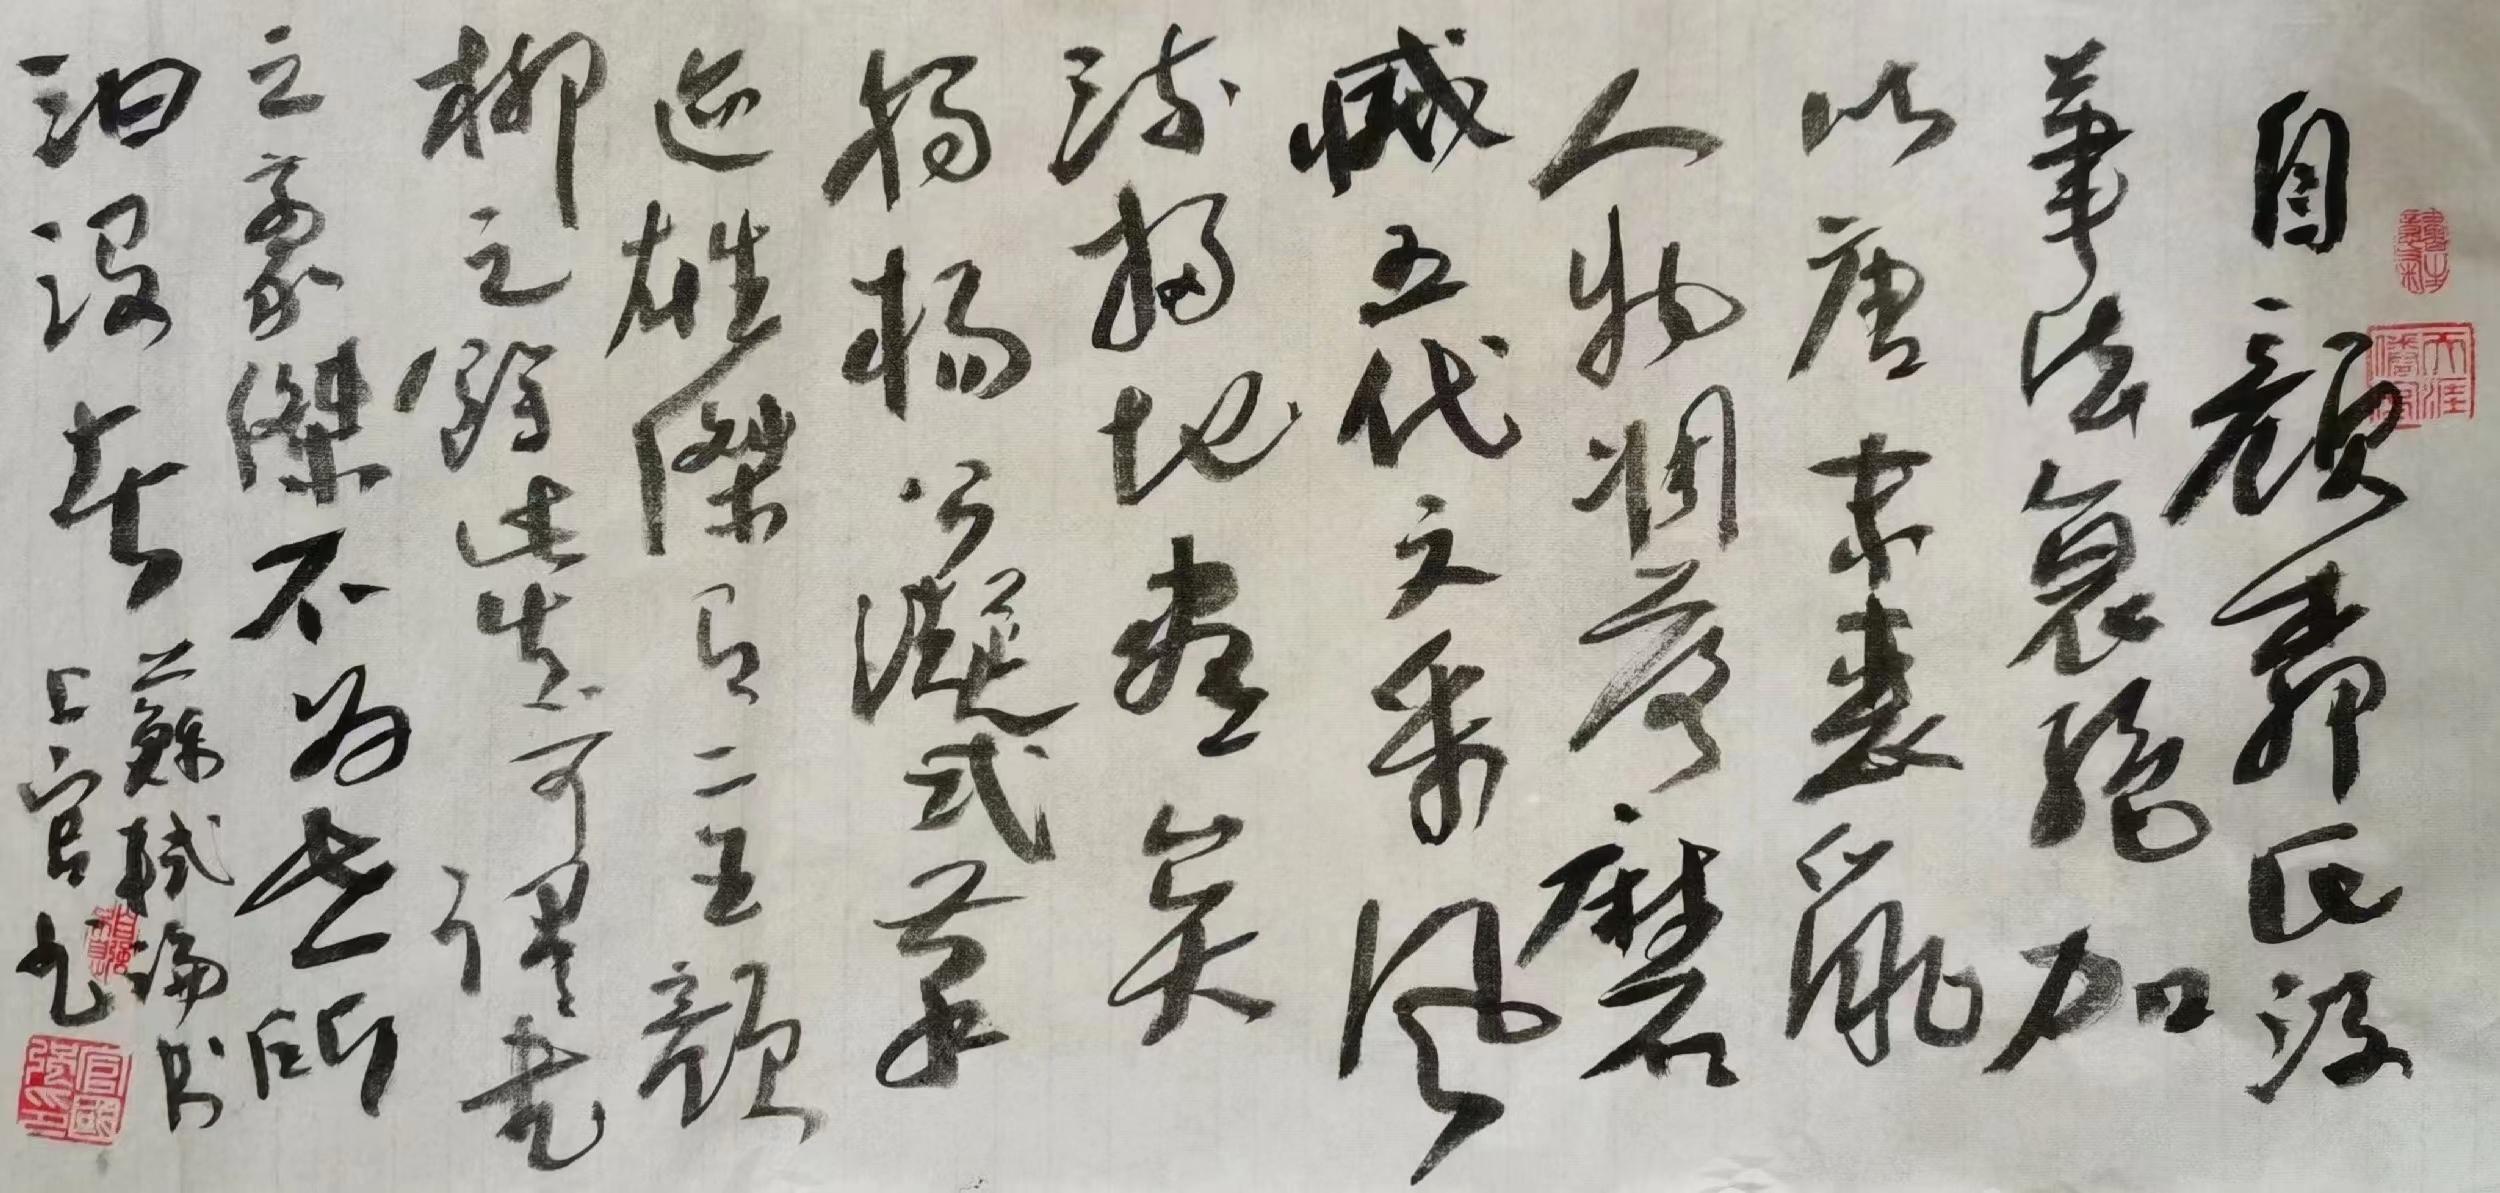 自顏柳氏沒
筆法衰絕加
以唐末喪亂
人物凋落磨
滅五代文采風
流掃地盡矣
獨楊公凝式筆
迹雄傑有二王顏
柳之餘此真可謂書
之豪傑不為世所
汩沒者
蘇軾論書
上官書